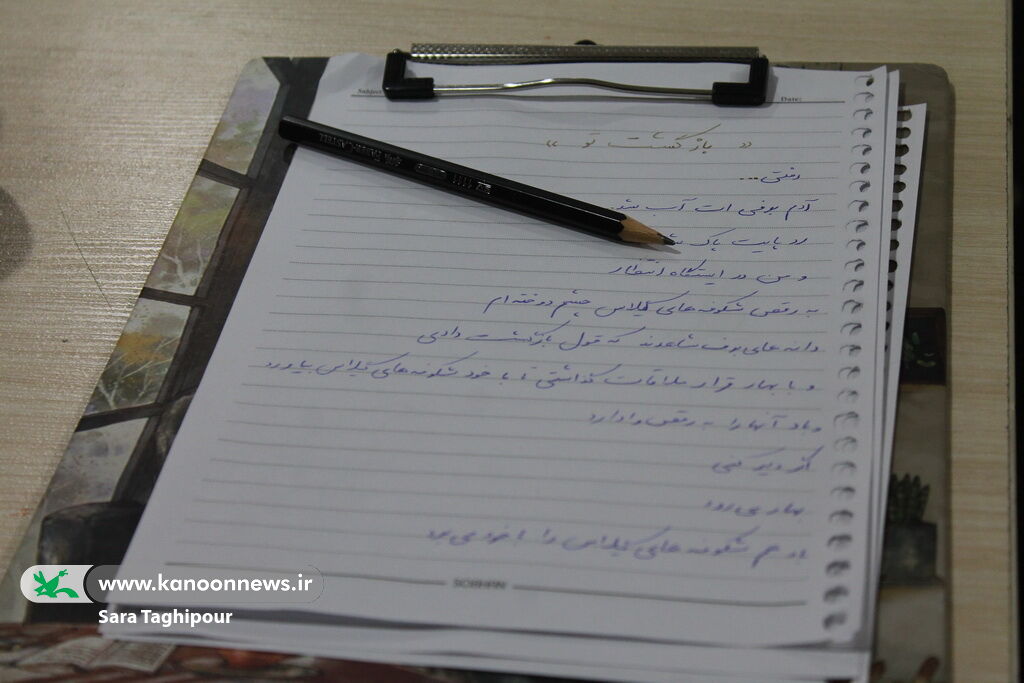 Subject
Date:
« بازگشت تو »
رفتی...
آدم برفی ات آب شد
رد پایت پاک
و من در ایستگاه انتظار
به رقص شکوفه های گیلاس چشم دوخته ام
دانه های برف شاهدند که قول بازگشت دادی
و با بهار قرار ملاقات گذاشتی تا با خود شکوفه های گیلاس بیاورد
و باد آنها را به رقص وادارد
اگر دیر کنی
بهار می رود
باد هم شکوفه های گیلاس را با خود می برد
FABER-CASTELL
1111
www.kanoonnews.ir
Sara Taghipour